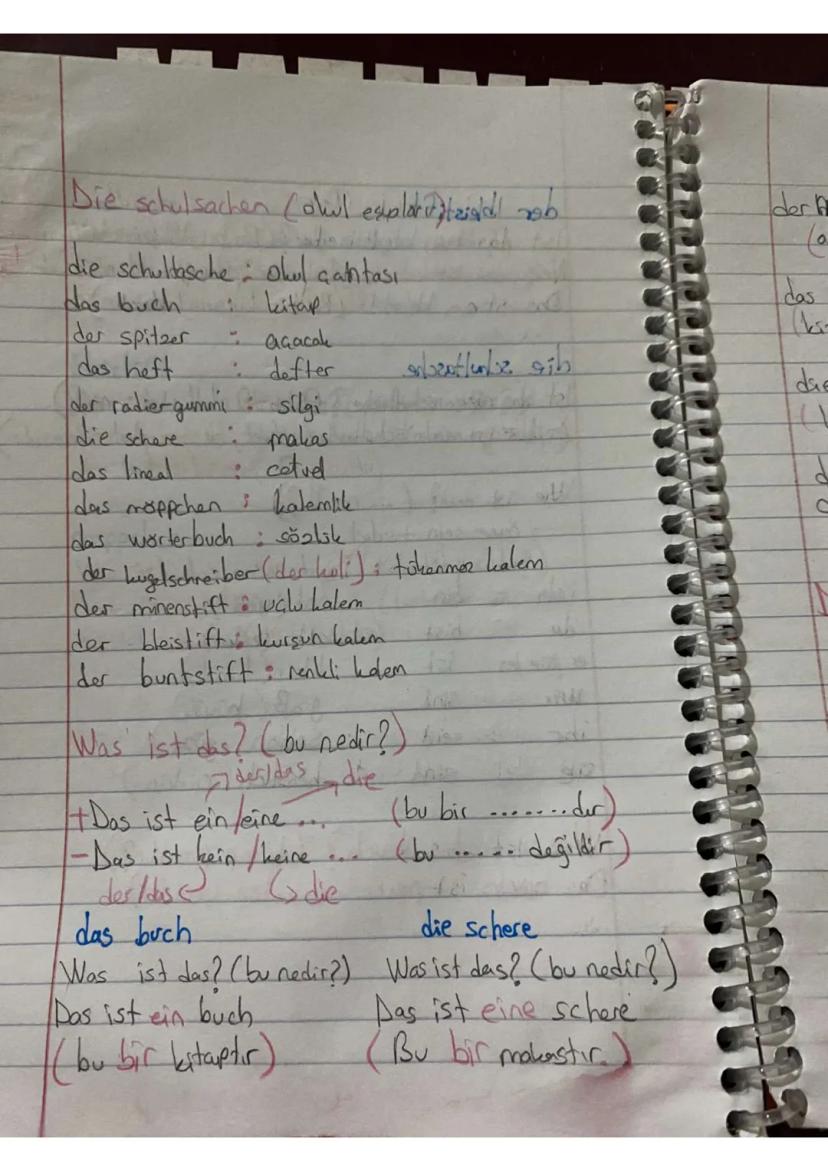 Die schulsachen (okul eşyaları)
die schultasche : okul çantası
das buch : kitap
der spitzer : açacak
das heft : defter
der radiergummi : silgi
die schere : makas
das lineal : cetvel
das mäppchen : kalemlik
das wörterbuch : sözlük
der kugelschreiber (der kuli) : tükenmez kalem
der minenstift : uçlu kalem
der bleistift : kurşun kalem
der buntstift : renkli kalem
Was ist das? (bu nedir?)
der/das die
+Das ist ein/eine ... (bu bir ........dır)
-Das ist kein/keine ... (bu ...... değildir)
der/das die
das buch die schere
Was ist das? (bu nedir?) Was ist das? (bu nedir?)
Das ist ein buch Das ist eine schere
(bu bir kitaptır) (Bu bir makastır.)
das